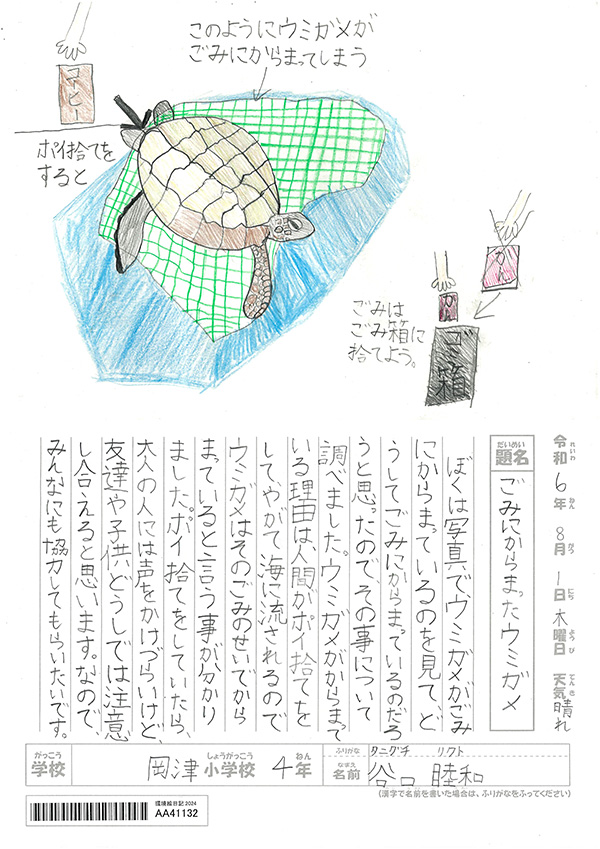 このようにウミガメが
ごみにからまってしまう
コーヒー
ポイ捨てを
すると
かん
かん
ごみは
ごみ箱に
捨てよう。
ゴミ箱
令和6年8月1日木曜日 天気晴れ
れいわ ねん がつ にち ようび てんき
だいめい
題名 ごみにからまったウミガメ
ぼくは写真で、ウミガメがごみ
にからまっているのを見て、ど
うしてごみにからまっているのだろ
うと思ったので、その事について
調べました。ウミガメがからまって
いる理由は、人間がポイ捨てを
して、やがて海に流されるので
ウミガメはそのごみのせいでから
まっていると言う事が分かり
ました。ポイ捨てをしていたら、
大人の人には声をかけづらいけど、
友達や子供どうしでは注意
し合えると思います。なので、
みんなにも協力してもらいたいです。
がっこう しょうがっこう ねん
学校 岡津小学校 4年
ふりがな タニグチ リクト
なまえ
名前 谷口 睦和
(漢字で名前を書いた場合は、ふりがなをふってください)
環境絵日記2024
AA41132